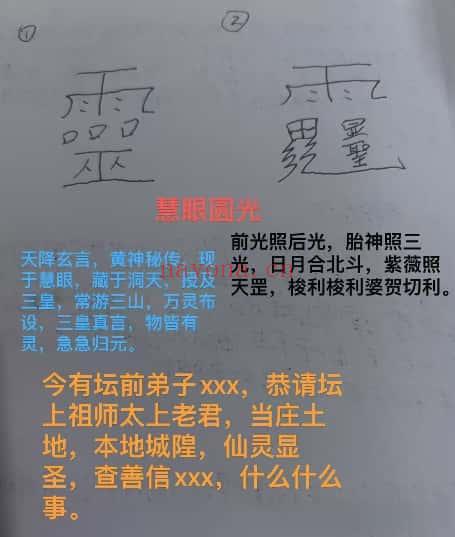 ① ②
靈
显
聖
慧眼圆光
天降玄言，黄神秘传，现
于慧眼，藏于洞天，授及
三皇，常游三山，万灵布
设，三皇真言，物皆有
灵，急急归元。
前光照后光，胎神照三
光，日月合北斗，紫薇照
天罡，梭利梭利婆贺切利。
今有坛前弟子xxx，恭请坛
上祖师太上老君，当庄土
地，本地城隍，仙灵显
圣，查善信xxx，什么什么
事。